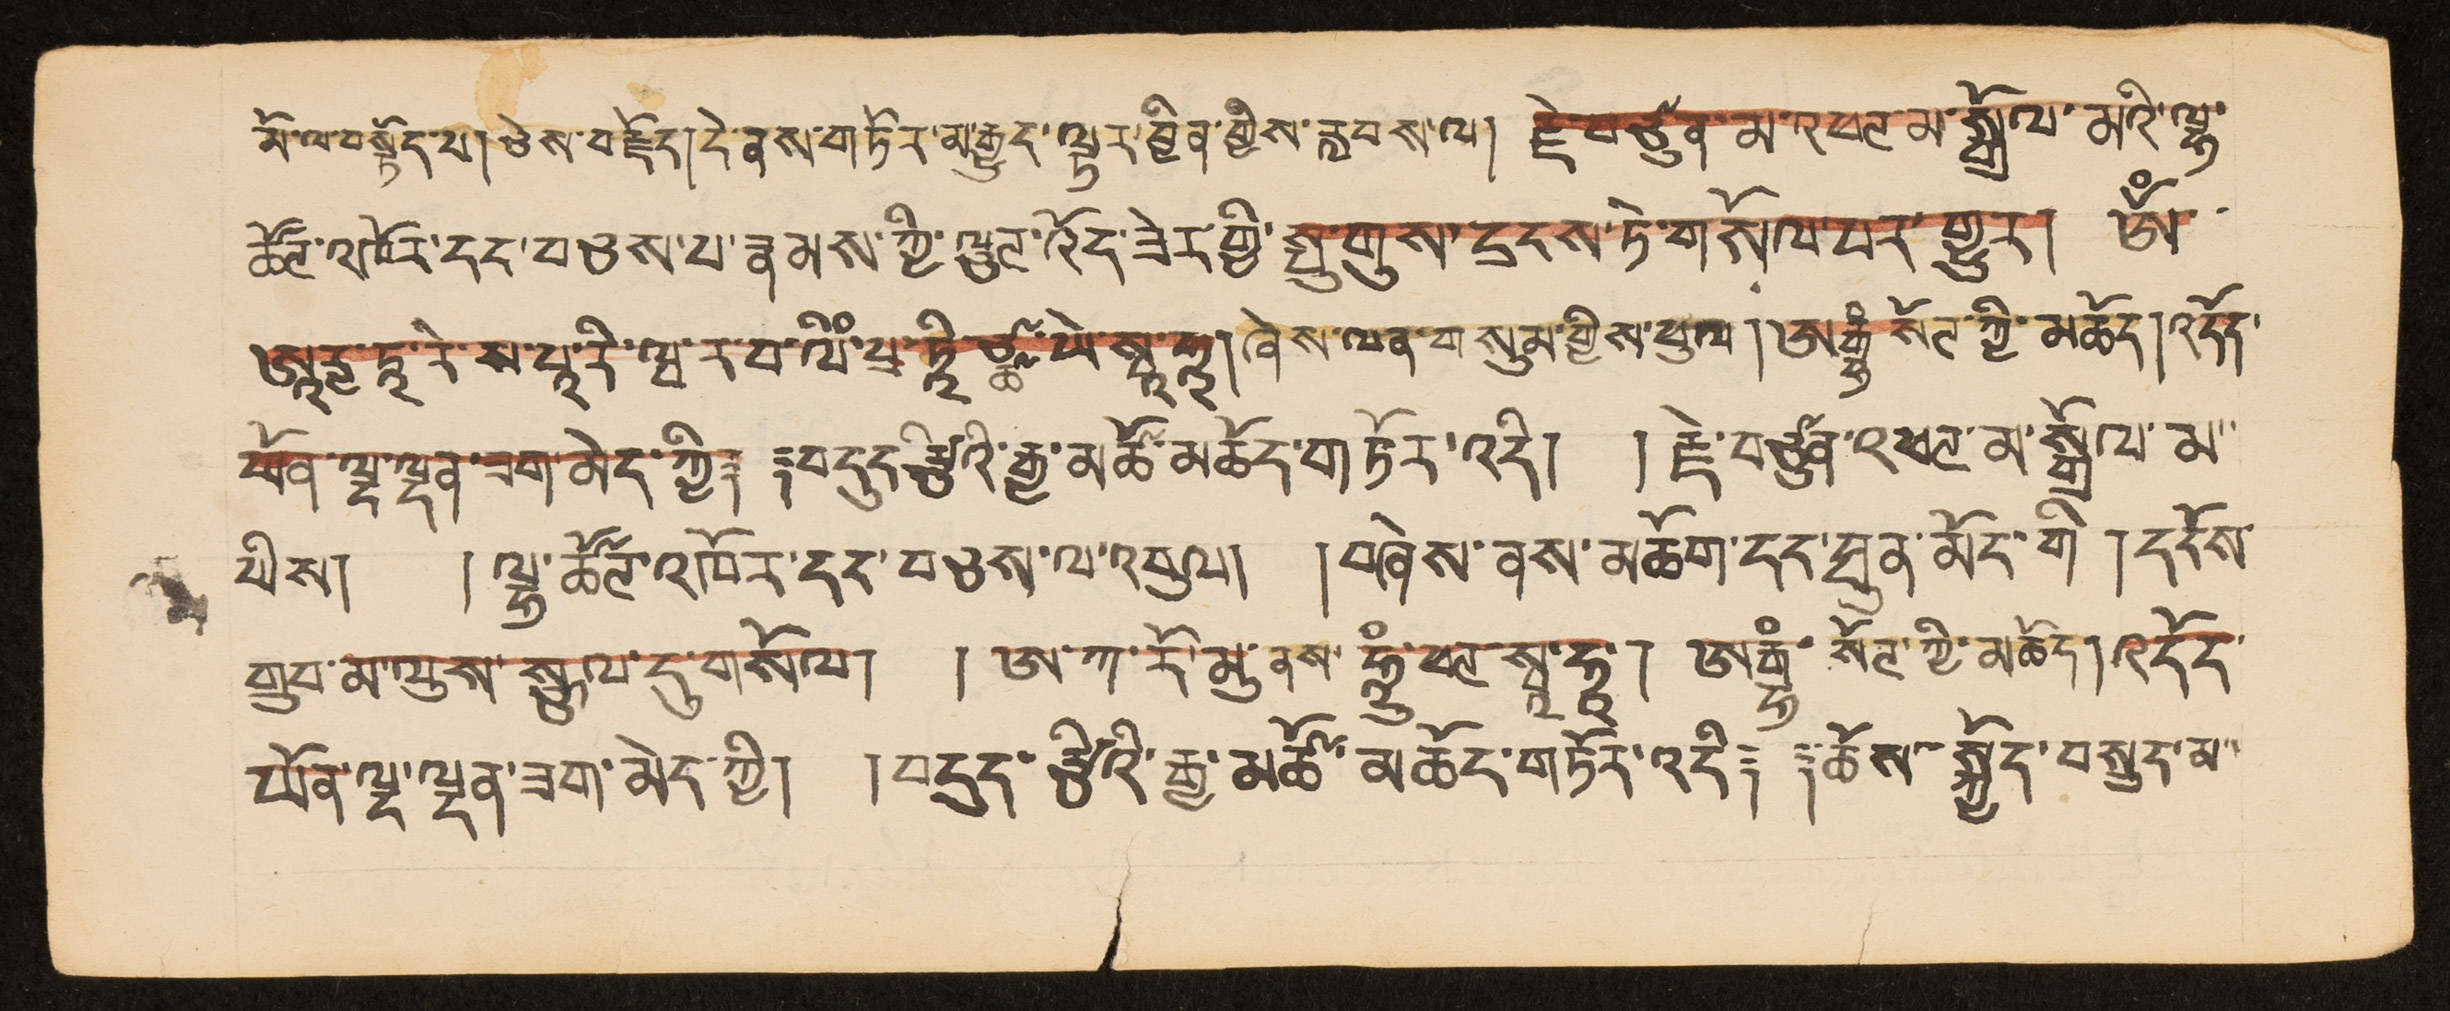 མོ་ལ་བསྟོད་པ། ཅེས་བརྗོད། དེ་ནས་གཏོར་མ་རྒྱུད་ལྟར་བྱིན་གྱིས་རླབས་ལ། རྗེ་བཙུན་མ་འཕགས་མ་སྒྲོལ་མའི་ལྷ་
ཚོགས་འཁོར་དང་བཅས་པ་རྣམས་ཀྱི་ལྗགས་འོད་ཟེར་གྱི་སྦུ་གུས་དྲངས་ཏེ་གསོལ་བར་གྱུར། ཨོཾ་
ཨཱརྱ་ཏཱ་རེ་ས་པ་རི་ཝཱ་ར་བ་ལིཾ་པྲ་ཏཱིཙྪ་ཡེ་སྭཱ་ཧཱ། ཞེས་ལན་གསུམ་གྱིས་ཕུལ། ཨརྒྷཾ་སོགས་ཀྱི་མཆོད། འདོད་
ཡོན་ལྔ་ལྡན་ཟག་མེད་ཀྱི། །བདུད་རྩིའི་རྒྱ་མཚོ་མཆོད་གཏོར་འདི། །རྗེ་བཙུན་འཕགས་མ་སྒྲོལ་མ་
ཡིས། །ལྷ་ཚོགས་འཁོར་དང་བཅས་ལ་འབུལ། །བཞེས་ནས་མཆོག་དང་ཐུན་མོང་གི །དངོས་
གྲུབ་མ་ལུས་སྩལ་དུ་གསོལ། །ཨ་ཀཱ་རོ་མུ་ནས་ཧཱུཾ་ཕཊ་སྭཱ་ཧཱ། ཨརྒྷཾ་སོགས་ཀྱི་མཆོད། འདོད་
ཡོན་ལྔ་ལྡན་ཟག་མེད་ཀྱི། །བདུད་རྩིའི་རྒྱ་མཚོ་མཆོད་གཏོར་འདི། །ཆོས་སྐྱོང་བསྲུང་མ་